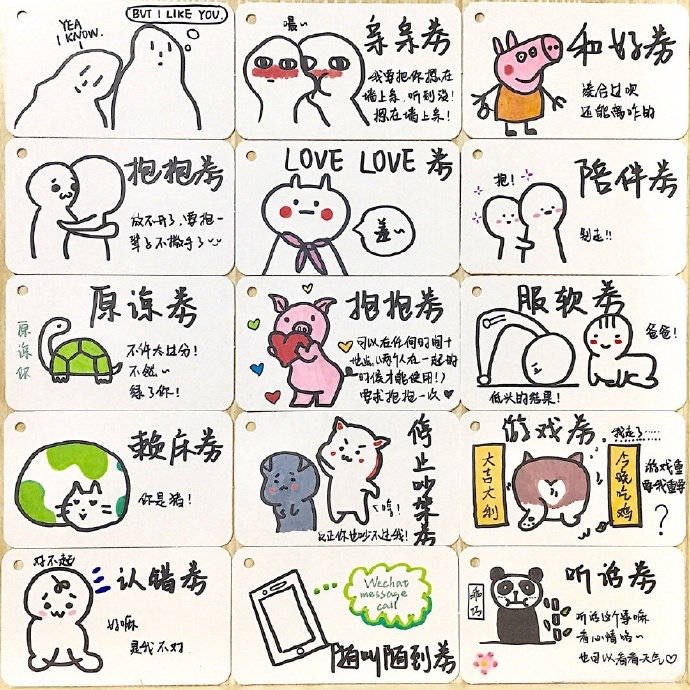 YEA
I KNOW.
BUT I LIKE YOU.
嘿~
亲亲券
我要把你摁在
墙上亲,听到没!
摁在墙上亲!
和好券
凑合过呗
还能离咋的
抱抱券
放不开了,要抱一
辈子不撒手了~
LOVE LOVE 券
羞~
陪伴券
抱!
别走!!
原谅券
原谅你
不许太过分!
不然~
绿了你!
抱抱券
可以在任何时间+
地点(两个人在一起的
时候才能使用!)
要求抱抱一次
服软券
爸爸!
低头的结果!
赖床券
你是猪!
停止吵架券
哼!
反正你也吵不过我!
游戏券
我走了……
大吉大利
今晚吃鸡
游戏重
要我重要
?
认错券
对不起
好嘛
是我不对
Wechat
message
call
随叫随到券
听话券
乖巧
听话这个事嘛
看心情咯~
也可以看看天气